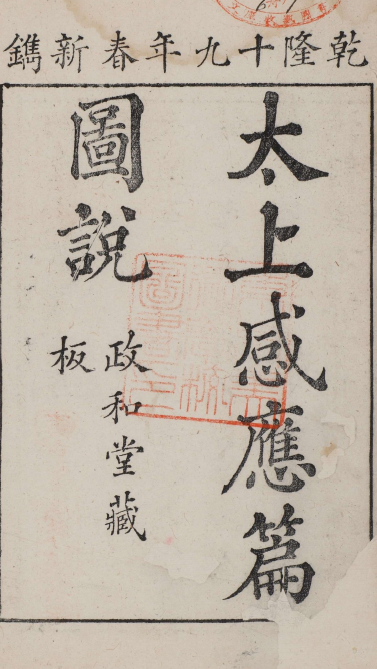 乾隆十九年春新鐫
太上感應篇
圖說
政和堂藏
板